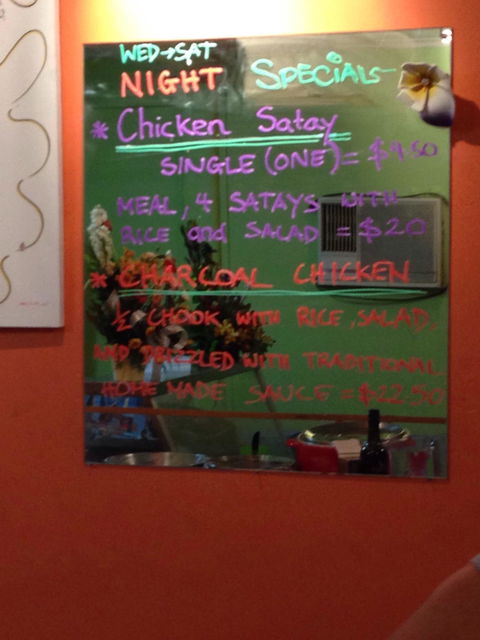 WED→SAT
NIGHT SPECIALS
* Chicken Satay
SINGLE (ONE) = $4.50
MEAL, 4 SATAYS WITH
RICE and SALAD = $20
* CHARCOAL CHICKEN
½ CHOOK WITH RICE, SALAD,
AND DRIZZLED WITH TRADITIONAL
HOME MADE SAUCE = $22.50